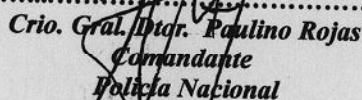 Crio. Gral. Dtor. Paulino Rojas
Comandante
Policía Nacional